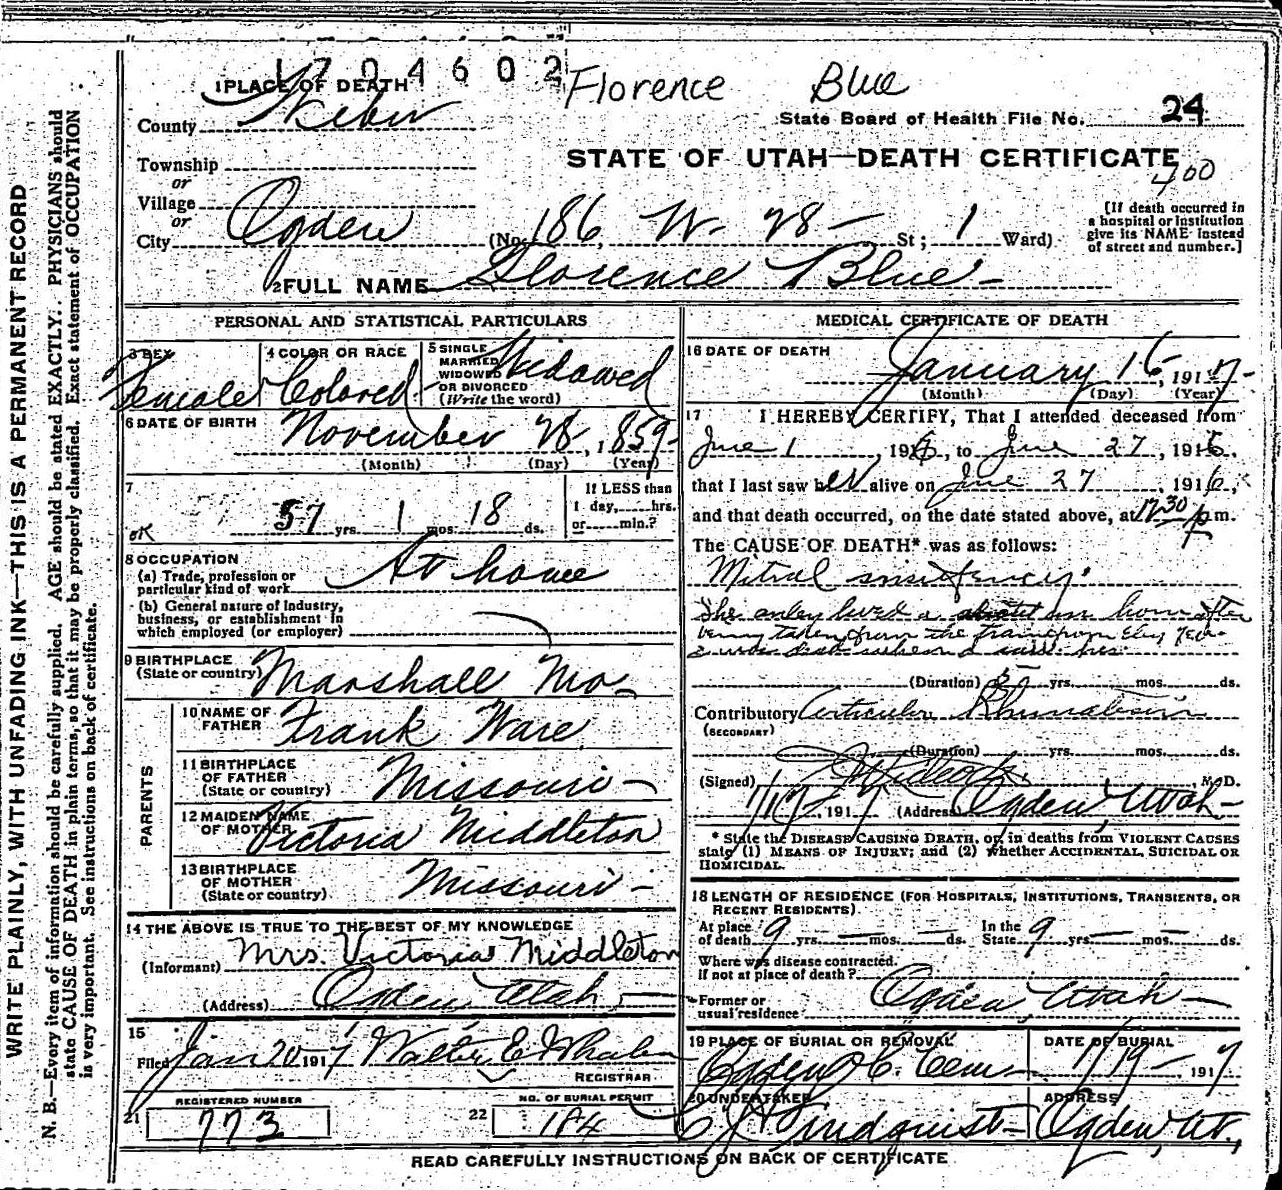 1704602
Florence Blue
1 PLACE OF DEATH
County Weber
State Board of Health File No. 24
Township
or
STATE OF UTAH—DEATH CERTIFICATE
400
Village
or
City Ogden (No. 186 W. 28 — St; 1 Ward)
[If death occurred in
a hospital or institution
give its NAME instead
of street and number.]
2 FULL NAME Florence Blue
PERSONAL AND STATISTICAL PARTICULARS
3 SEX Female
4 COLOR OR RACE Colored
5 SINGLE
MARRIED
WIDOWED
OR DIVORCED
(Write the word) Widowed
6 DATE OF BIRTH November 28, 1859
(Month) (Day) (Year)
7
OK 57 yrs. 1 mos. 18 ds.
If LESS than
1 day, hrs.
or min.?
8 OCCUPATION
(a) Trade, profession or
particular kind of work At home
(b) General nature of Industry,
business, or establishment in
which employed (or employer)
9 BIRTHPLACE
(State or country) Marshall Mo.
PARENTS
10 NAME OF
FATHER Frank Ware
11 BIRTHPLACE
OF FATHER
(State or country) Missouri
12 MAIDEN NAME
OF MOTHER Victoria Middleton
13 BIRTHPLACE
OF MOTHER
(State or country) Missouri
14 THE ABOVE IS TRUE TO THE BEST OF MY KNOWLEDGE
(Informant) Mrs. Victoria Middleton
(Address) Ogden Utah
15
Filed Jan 20 1917 Walter E Whalen
REGISTRAR
21 REGISTERED NUMBER
773
22 NO. OF BURIAL PERMIT
184
MEDICAL CERTIFICATE OF DEATH
16 DATE OF DEATH
January 16, 1917
(Month) (Day) (Year)
17 I HEREBY CERTIFY, That I attended deceased from
June 1, 1916, to June 27, 1916,
that I last saw her alive on June 27, 1916,
and that death occurred, on the date stated above, at 12 30 p m.
The CAUSE OF DEATH* was as follows:
Mitral
She only lived a about an hour after
being taken from the train from
(Duration) yrs. mos. ds.
Contributory Articular Rhumatism
(SECONDARY)
(Duration) yrs. mos. ds.
(Signed) M.D.
1/17, 1917 (Address) Ogden, Utah
* State the DISEASE CAUSING DEATH, or, in deaths from VIOLENT CAUSES
state (1) MEANS OF INJURY; and (2) whether ACCIDENTAL, SUICIDAL OR
HOMICIDAL.
18 LENGTH OF RESIDENCE (FOR HOSPITALS, INSTITUTIONS, TRANSIENTS, OR
RECENT RESIDENTS)
At place
of death 9 yrs. — mos. — ds. In the
State 9 yrs. — mos. — ds.
Where was disease contracted.
If not at place of death?
Former or
usual residence Ogden, Utah
19 PLACE OF BURIAL OR REMOVAL
Ogden C. Cem
DATE OF BURIAL
1/19, 1917
20 UNDERTAKER
Lindquist
ADDRESS
Ogden, Ut.
READ CAREFULLY INSTRUCTIONS ON BACK OF CERTIFICATE
WRITE PLAINLY, WITH UNFADING INK—THIS IS A PERMANENT RECORD
N. B.—Every item of information should be carefully supplied. AGE should be stated EXACTLY. PHYSICIANS should
state CAUSE OF DEATH in plain terms, so that it may be properly classified. Exact statement of OCCUPATION
is very important. See instructions on back of certificate.